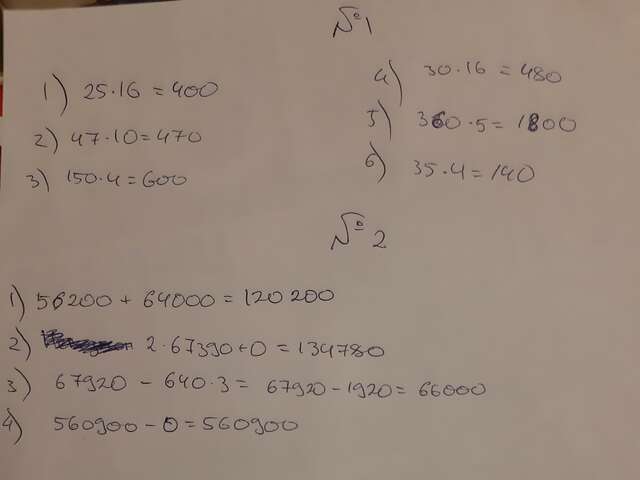 №1
1) 25·16 = 400
2) 47·10 = 470
3) 150·4 = 600
4) 30·16 = 480
5) 360·5 = 1800
6) 35·4 = 140
№2
1) 56200 + 64000 = 120 200
2) 2·67390+0 = 134780
3) 67920 - 640·3 = 67920 - 1920 = 66000
4) 560900 - 0 = 560900